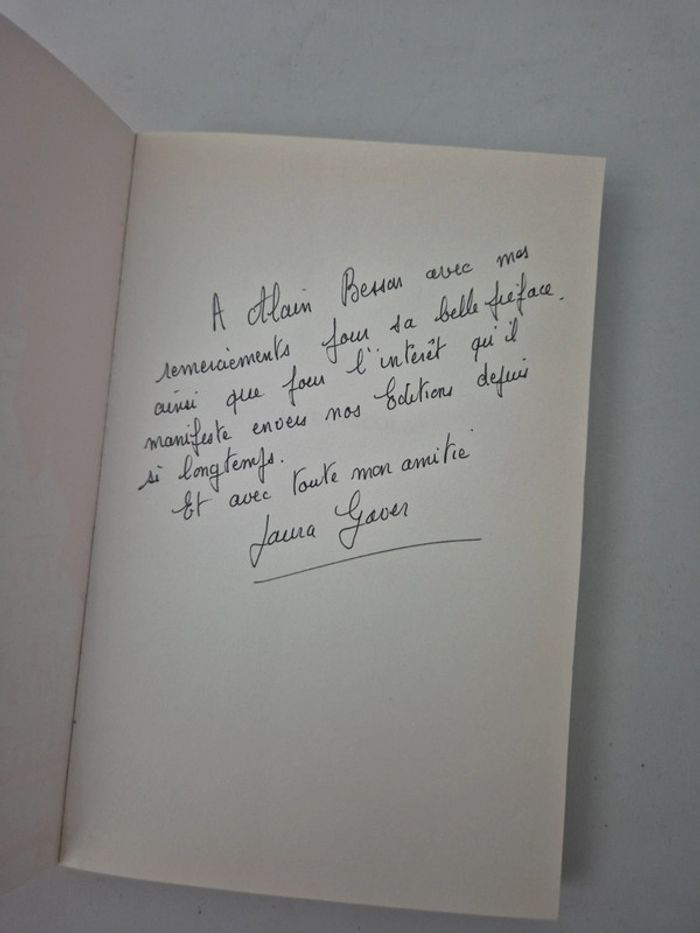 A Alain Besson avec mes
remerciements pour sa belle préface.
ainsi que pour l'intérêt qu'il
manifeste envers nos Editions depuis
si longtemps.
Et avec toute mon amitié
Laura Gaver